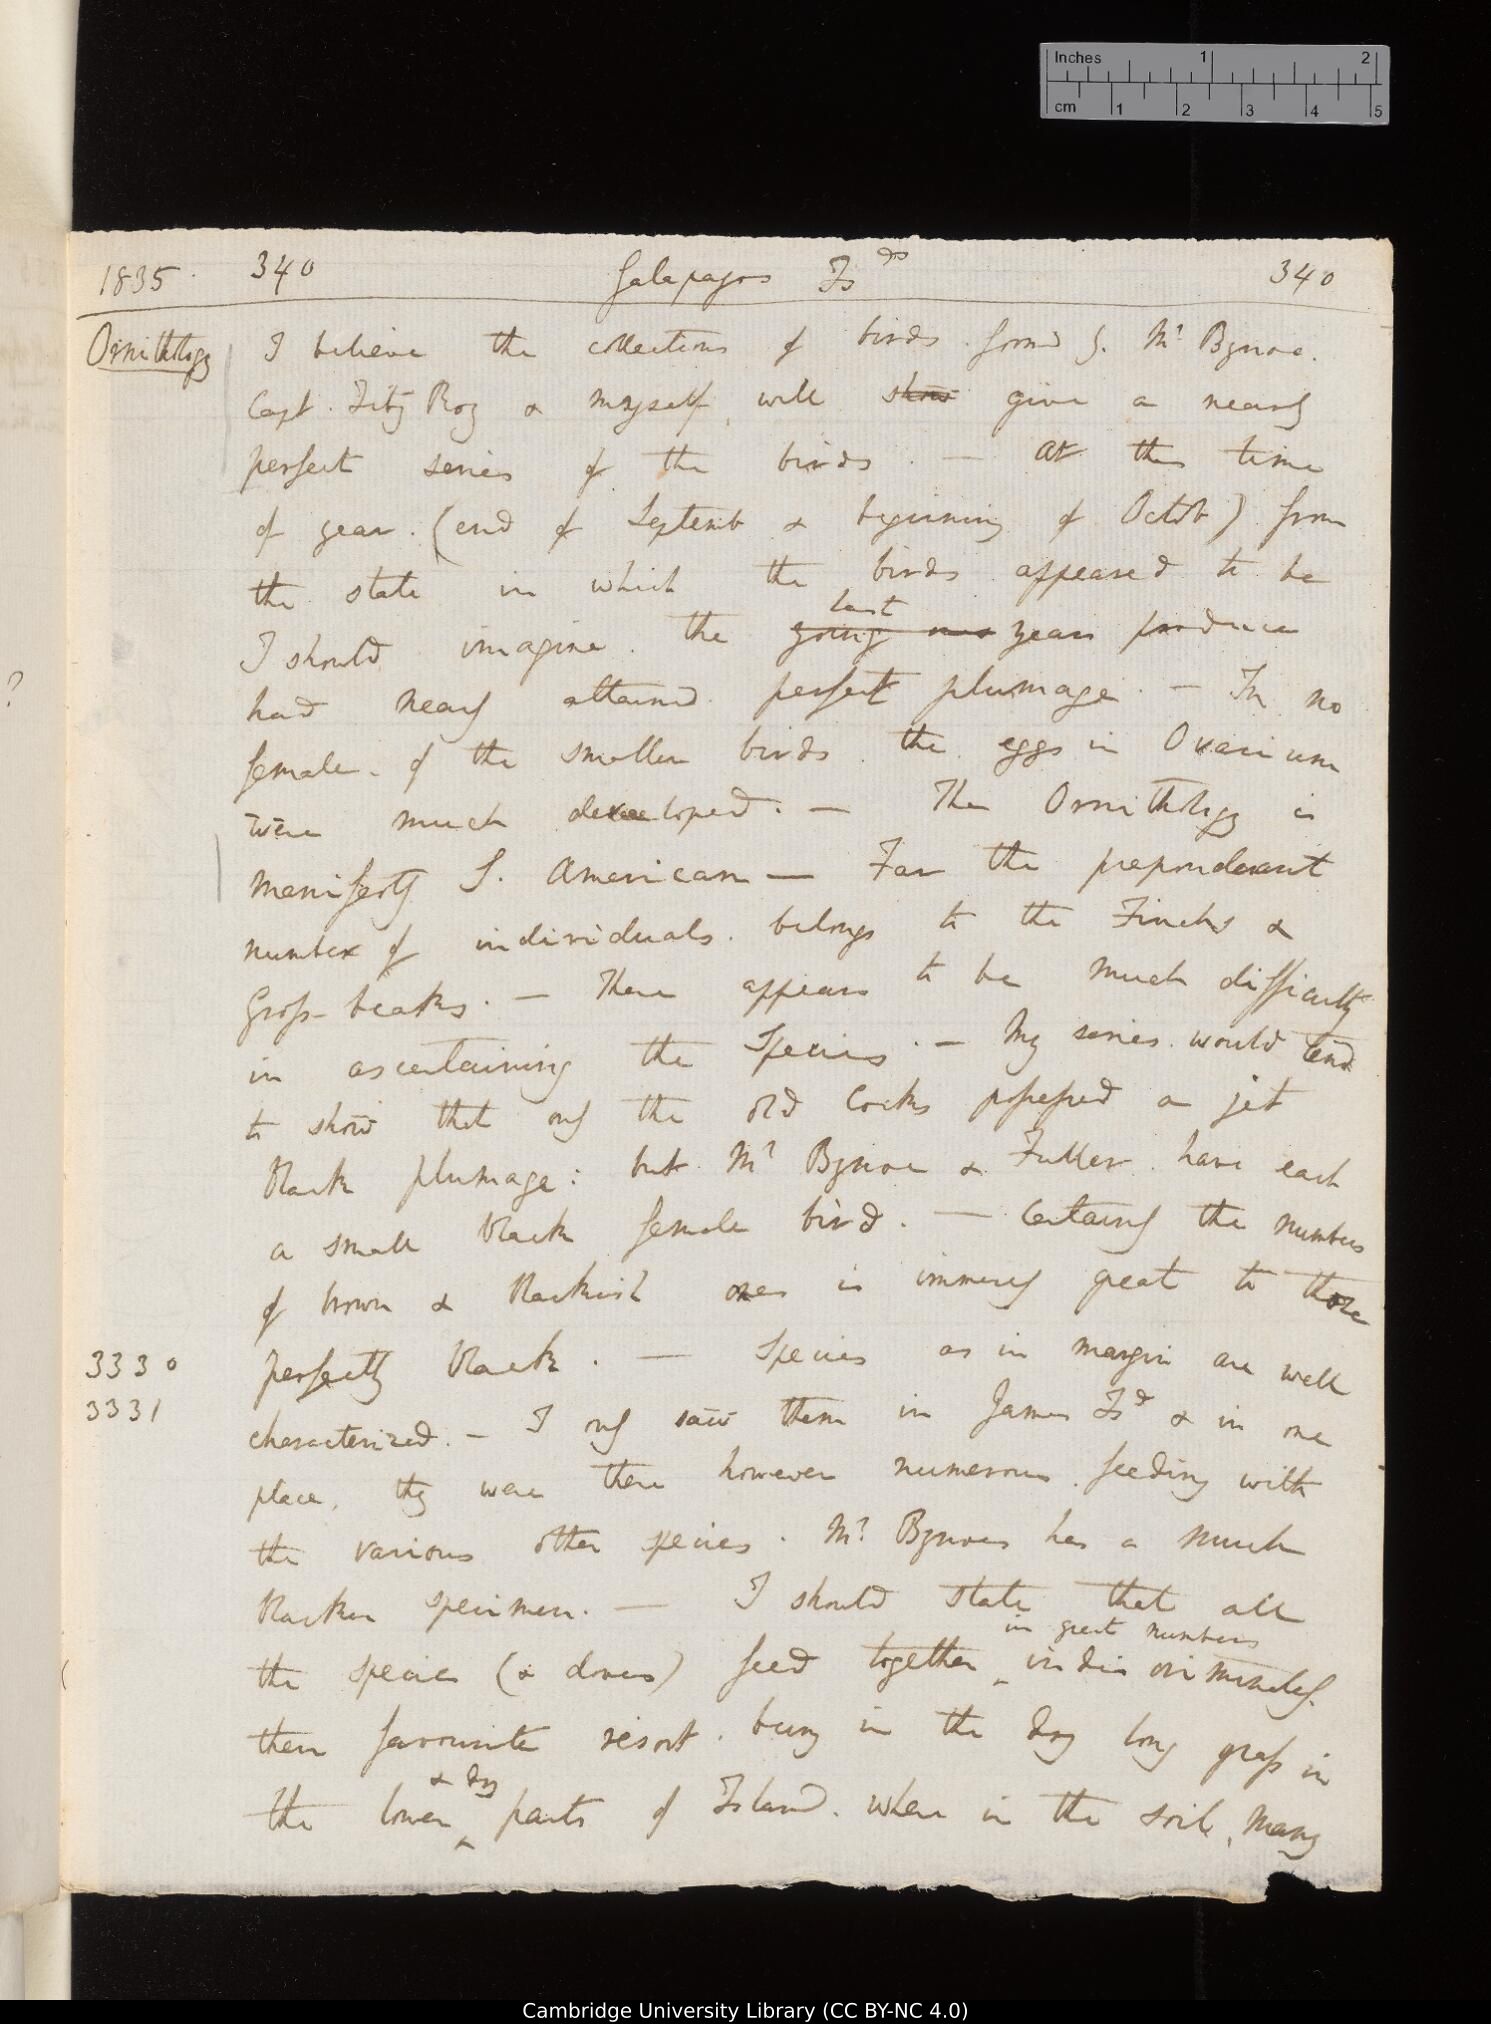 Inches 1 2
cm 1 2 3 4 5
1835 340 Galapagos Is^ds 340
Ornithology I believe the collections of birds M^r Bynoe.
Capt. FitzRoy & myself, will show give a nearly
perfect series of the birds. — At this time
of year. (end of Septemb & beginning of Octob) from
the state in which the birds appeared to be
last
I should imagine. the young years produce
had nearly attained perfect plumage. — In no
female. of the smaller birds. the eggs in Ovarium
were much developed. — The Ornithology is
manifestly S. American — Far the preponderant
number of individuals. belongs to the Finchs &
Gross-beaks. — There appears to be much difficulty
in ascertaining the Species. — My series would tend
to show that only the old Cocks possessed a jet
black plumage: but M^r Bynoe & Fuller. have each
a small black female bird. — Certainly the numbers
of brown & blackish ones is immensly great to those
3330 perfectly black. — Species as in margin are well
3331
characterized. — I only saw them in James Is^d & in one
place, they were there however numerous feeding with
the various other species. M^r Bynoes has a much
blacker specimen. — I should state that all
in great numbers
the species (& doves) feed together ^ indiscriminately.
their favourite resort. being in the dry long grass in
& dry
the lower ^ parts of Island. where in the soil, many
?
Cambridge University Library (CC BY-NC 4.0)